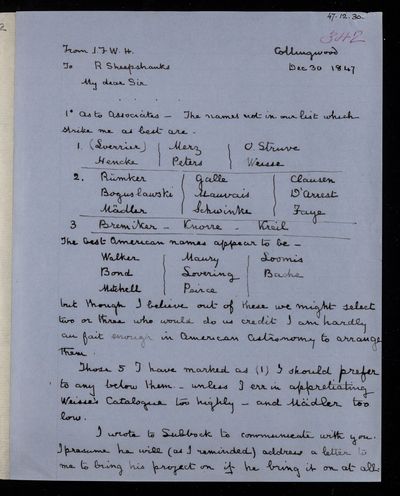 47.12.30.
342
From J.F.W.H. Collingwood
To R Sheepshanks Dec 30 1847
My dear Sir
. . . . .
1° as to Associates – The names not in our list which
strike me as best are.
1. (Leverrier) Merz O. Struve
Hencke Peters Weisse
2. Rümker Galle Clausen
Boguslawski Mauvais D'Arrest
Mädler Schwinke Faye
3 Bremiker – Knorre – Kreil
The best American names appear to be –
Walker Maury Loomis
Bond Lovering Bache
Mitchell Peirce
but though I believe out of these we might select
two or three who would do us credit I am hardly
au fait enough in American Astronomy to arrange
them.
Those 5 I have marked as (1) I should prefer
to any below them. – unless I err in appreciating
Weisse's Catalogue too highly – and Mädler too
low.
I wrote to Lubbock to communicate with you.
I presume he will (as I reminded) address a letter to
me to bring his project on if he bring it on at all